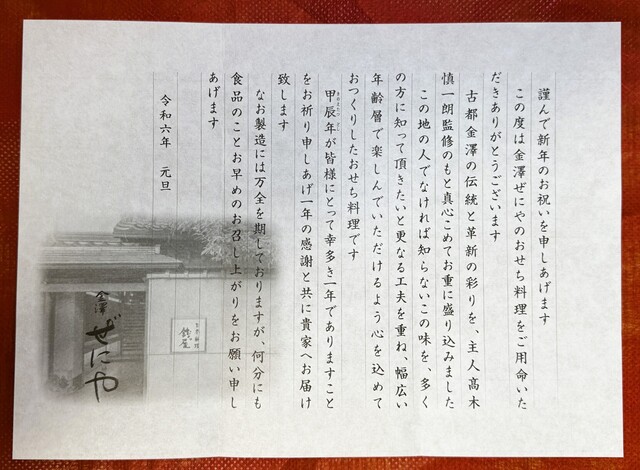 謹んで新年のお祝いを申しあげます
この度は金澤ぜにやのおせち料理をご用命いた
だきありがとうございます
古都金澤の伝統と革新の彩りを、主人髙木
慎一朗監修のもと真心こめてお重に盛り込みました
この地の人でなければ知らないこの味を、多く
の方に知って頂きたいと更なる工夫を重ね、幅広い
年齢層で楽しんでいただけるよう心を込めて
おつくりしたおせち料理です
甲辰年が皆様にとって幸多き一年でありますこと
をお祈り申しあげ一年の感謝と共に貴家へお届け
致します
なお製造には万全を期しておりますが、何分にも
食品のことお早めのお召し上がりをお願い申し
あげます
令和六年 元旦
銭屋
金澤 ぜにや